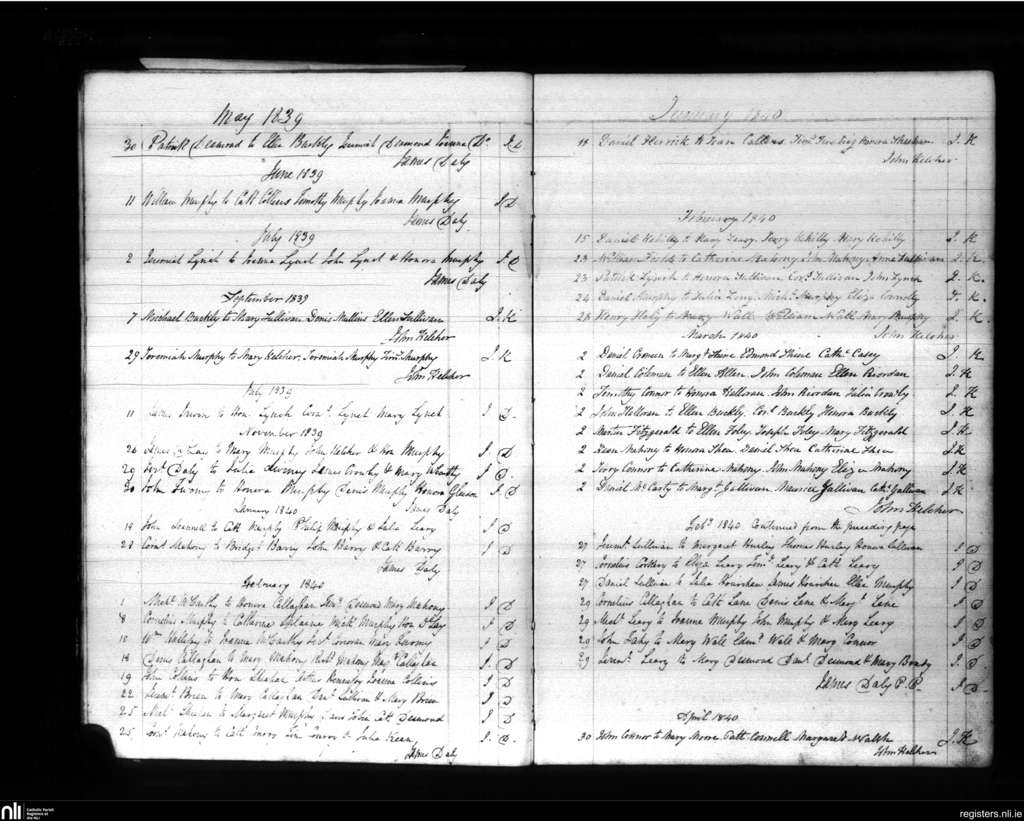 May 1839
30 Patrick Desmond to Ellen Buckley Jeremiah Desmond Joanna Do. J. D
James Daly
June 1839
11 William Murphy to Cath Collins Timothy Murphy Joanna Murphy J D
James Daly
July 1839
2 Jeremiah Lynch to Joanna Lynch John Lynch & Honora Murphy J. D
James Daly
September 1839
7 Michael Buckly to Mary Sullivan Denis Mullins Ellen Sullivan J. K
John Kelcher
29 Jeremiah Murphy to Mary Kelcher, Jeremiah Murphy Timy Murphy J K
John Kelcher
July 1839
11 to Hon Lynch Corns. Lynch Mary Lynch J D.
November 1839
26 to Mary Murphy John Kelcher & Hon Murphy J. D
29 Daly to Julia Twomy James Crowly & Mary McCarthy J D.
30 John Twomy to Honora Murphy Denis Murphy Honora Gleeson J. D
James Daly
January 1840
14 John Scannell to Cath Murphy Philip Murphy & Julia Leary J D
28 Corns Mahony to Bridgt Barry John Barry & Cath Barry J D
James Daly
February 1840
1 Michl McCarthy to Honora Callaghan Desmond Mary Mahony J D
8 Cornelius Murphy to Catherine Michl Murphy Hon J D
10 Wm to Joanna McCarthy J D
18 Denis Callaghan to Mary Mahony Mahony Callaghan J. D
19 John Collins to Hon Joanna Collins J. D
22 Jeremh Breen to Mary Callaghan Danl Sullivan & Mary Breen J D
25 to Margaret Murphy Cath Desmond J D
25 Mahony to Cath & Julia Keen J. D.
James Daly
January 1840
18 Daniel Herrick to Joan Honora Sheehan J. K
John Kelcher
February 1840
15 Daniel Kehilly to Mary Leary Jerry Kehilly Mary Kehilly J. K
23 William Fields to Catherine Mahony John Mahony Anne Sullivan J. K
23 Patrick Lynch to Honora Sullivan Cors. Sullivan John Lynch J. K.
24 Daniel Murphy to Julia Long Michl. Murphy Eliza K.
28 Henry Haly to Mary Wall William Wall Mary Murphy J. K
John Kelcher
March 1840
2 Daniel Cronen to Margt Shine Edmond Shine Cathe Casey J. K
2 Daniel Coleman to Ellen Allen John Coleman Ellen Riordan J. K
2 Timothy Connor to Honora Halloran John Riordan Julia Crowly J. K
2 John Halloran to Ellen Buckly. Cors. Buckly Honora Buckly J. K
2 Martin Fitzgerald to Ellen Foley Joseph Foley Mary Fitzgerald J. K
2 Mahony to Honora Shea Daniel Shea Catherine Shea J K
2 Jerry Connor to Catherine Mahony John Mahony Eliza Mahony J K
2 Daniel McCarty to Margt. Sullivan Maurice Sullivan Cathe. Sullivan J K
John Kelcher
Feby. 1840 Continued from the preceding page
27 Jeremh Sullivan to Margaret Hurley Thomas Hurley Honora Sullivan J D
27 Cornelius Corkery to Eliza Leary Timy. Leary & Cath Leary J D
27 Daniel Sullivan to Julia Hourihan James Hourihan Ellen Murphy J D
29 Cornelius Callaghan to Cath Lane Denis Lane & Margt Lane J D
29 Michl Leary to Joanna Murphy John Murphy & Mary Leary J D
29 John Fahy to Mary Wall Edmd Wall & Mary Connor J D
29 Jeremh Leary to Mary Desmond Danl Desmond & Mary J. D.
James Daly P. P. J D.
April 1840
30 John Connor to Mary Moore Patt Connell Margaret Walsh J. K
John Kelcher
nli
Catholic Parish
Registers at
the NLI
registers.nli.ie